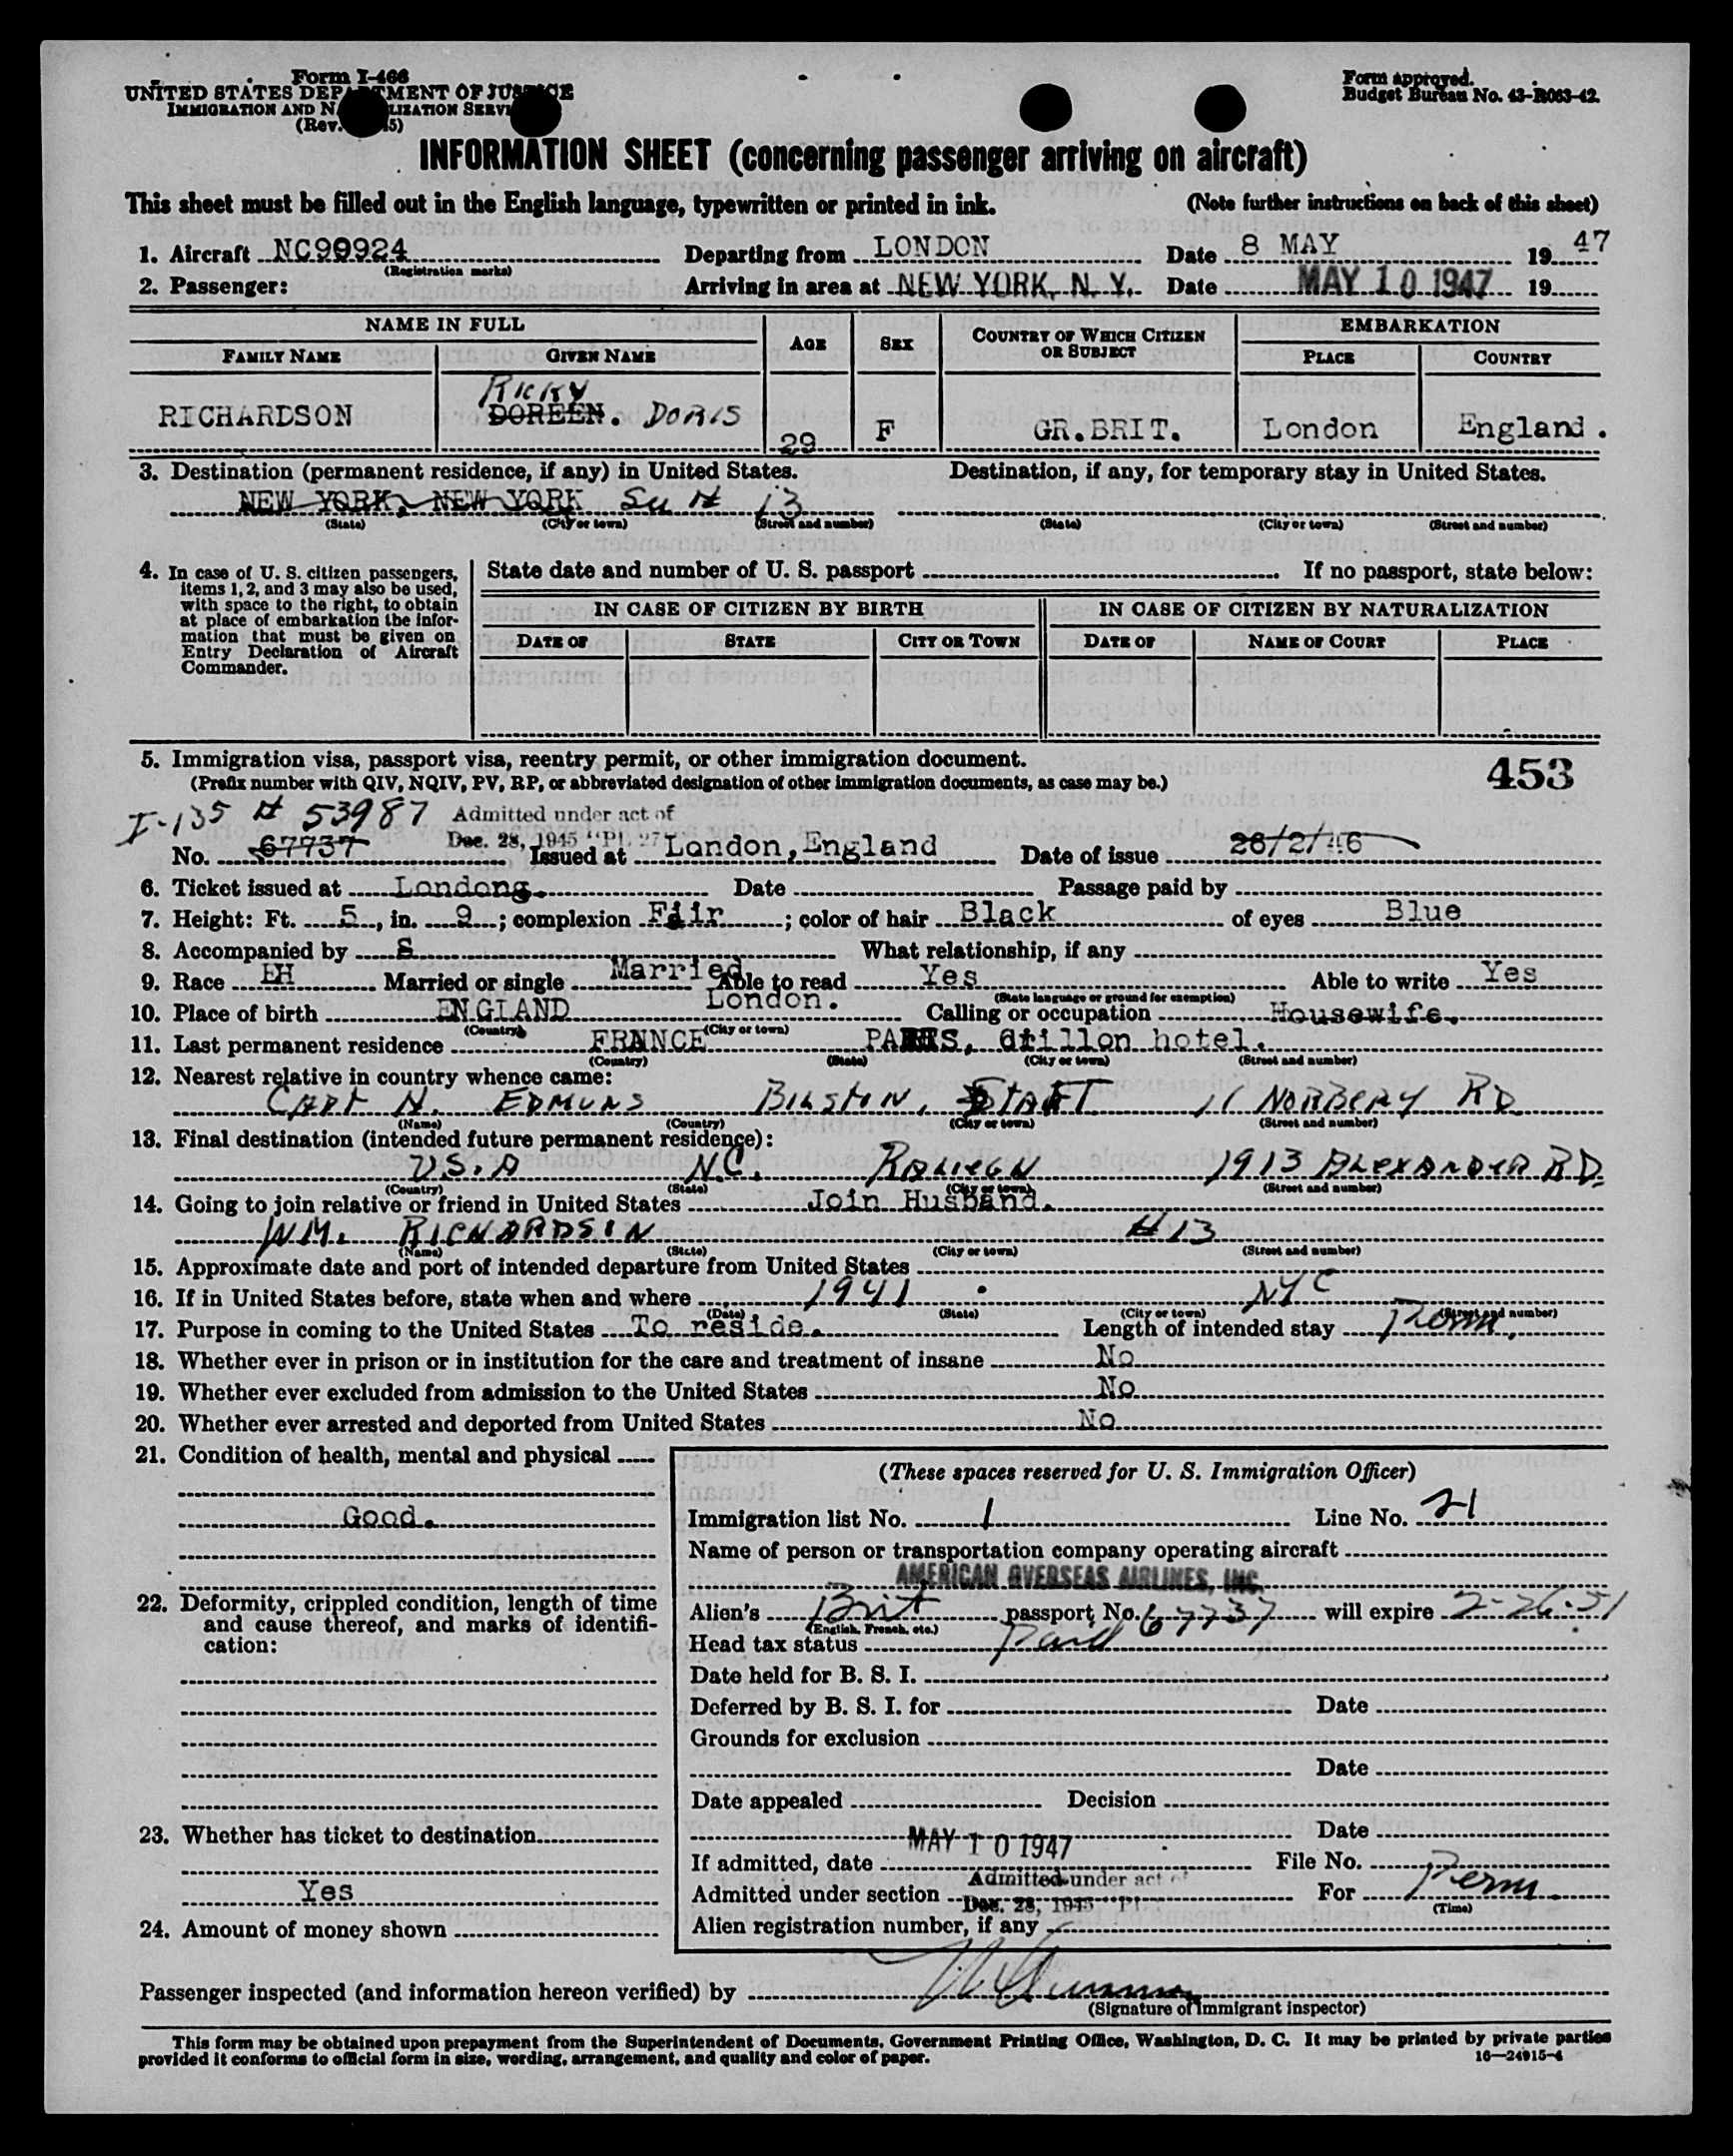 Form I-466
UNITED STATES DEPARTMENT OF JUSTICE
IMMIGRATION AND NATURALIZATION SERVICE
(Rev.
Form approved.
Budget Bureau No. 43-R063-42.
INFORMATION SHEET (concerning passenger arriving on aircraft)
This sheet must be filled out in the English language, typewritten or printed in ink. (Note further instructions on back of this sheet)
1. Aircraft NC90924 Departing from LONDON Date 8 MAY 1947
(Registration marks)
2. Passenger: Arriving in area at NEW YORK, N. Y. Date MAY 10 1947 19
NAME IN FULL AGE SEX COUNTRY OF WHICH CITIZEN OR SUBJECT EMBARKATION
FAMILY NAME GIVEN NAME PLACE COUNTRY
RICKY
RICHARDSON DOREEN. DORIS 29 F GR.BRIT. London England.
3. Destination (permanent residence, if any) in United States. Destination, if any, for temporary stay in United States.
NEW YORK, NEW YORK # 13
(State) (City or town) (Street and number) (State) (City or town) (Street and number)
4. In case of U. S. citizen passengers, items 1, 2, and 3 may also be used, with space to the right, to obtain at place of embarkation the information that must be given on Entry Declaration of Aircraft Commander.
State date and number of U. S. passport If no passport, state below:
IN CASE OF CITIZEN BY BIRTH IN CASE OF CITIZEN BY NATURALIZATION
DATE OF STATE CITY OR TOWN DATE OF NAME OF COURT PLACE
5. Immigration visa, passport visa, reentry permit, or other immigration document. 453
(Prefix number with QIV, NQIV, PV, RP, or abbreviated designation of other immigration documents, as case may be.)
I-135 # 53987 Admitted under act of
Dec. 28, 1945 "PL 27
No. 67737 Issued at London, England Date of issue 26/2/46
6. Ticket issued at London. Date Passage paid by
7. Height: Ft. 5, in. 9; complexion Fair; color of hair Black of eyes Blue
8. Accompanied by S What relationship, if any
9. Race EH Married or single Married Able to read Yes Able to write Yes
(State language or ground for exemption)
10. Place of birth ENGLAND London. Calling or occupation Housewife.
(Country) (City or town)
11. Last permanent residence FRANCE PARIS, Crillon hotel.
(Country) (State) (City or town) (Street and number)
12. Nearest relative in country whence came:
CAPT N. EDMUNS BILSTON, STAFF 11 NORBERY RD
(Name) (Country) (City or town) (Street and number)
13. Final destination (intended future permanent residence):
U.S.A N.C. RALIEGH 1913 ALEXANDER RD.
(Country) (State) (City or town) (Street and number)
14. Going to join relative or friend in United States Join Husband.
WM. RICHARDSON #13
(Name) (State) (City or town) (Street and number)
15. Approximate date and port of intended departure from United States
16. If in United States before, state when and where 1941 NYC
(Date) (State) (City or town) (Street and number)
17. Purpose in coming to the United States To reside. Length of intended stay Perm.
18. Whether ever in prison or in institution for the care and treatment of insane No
19. Whether ever excluded from admission to the United States No
20. Whether ever arrested and deported from United States No
21. Condition of health, mental and physical
Good.
22. Deformity, crippled condition, length of time and cause thereof, and marks of identification:
23. Whether has ticket to destination
Yes
24. Amount of money shown
(These spaces reserved for U. S. Immigration Officer)
Immigration list No. 1 Line No. 21
Name of person or transportation company operating aircraft
AMERICAN OVERSEAS AIRLINES, INC.
Alien's Brit passport No. 67737 will expire 2-26-51
(English, French, etc.)
Head tax status Paid
Date held for B. S. I.
Deferred by B. S. I. for Date
Grounds for exclusion
Date
Date appealed Decision
Date
If admitted, date MAY 10 1947 File No.
Admitted under act of
Admitted under section Dec. 28, 1945 "PL For Perm.
(Time)
Alien registration number, if any
Passenger inspected (and information hereon verified) by
(Signature of Immigrant inspector)
This form may be obtained upon prepayment from the Superintendent of Documents, Government Printing Office, Washington, D. C. It may be printed by private parties
provided it conforms to official form in size, wording, arrangement, and quality and color of paper. 16—24915-4